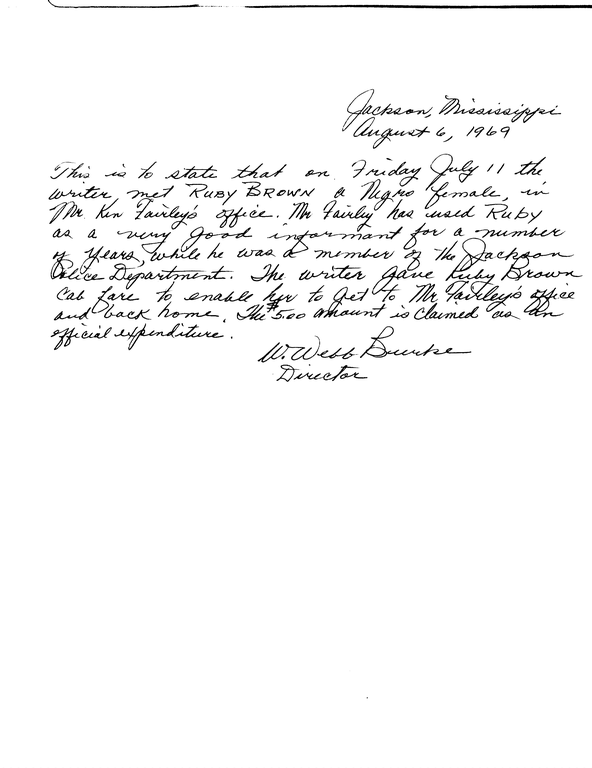 Jackson, Mississippi
August 6, 1969
This is to state that on Friday July 11 the
writer met RUBY BROWN a Negro female, in
Mr. Ken Fairley's office. Mr Fairley has used RUBY
as a very good informant for a number
of years, while he was a member of the Jackson
Police Department. The writer gave Ruby Brown
cab fare to enable her to get to Mr Fairley's office
and back home. The $5.00 amount is claimed as an
official expenditure.
W. Webb Burke
Director